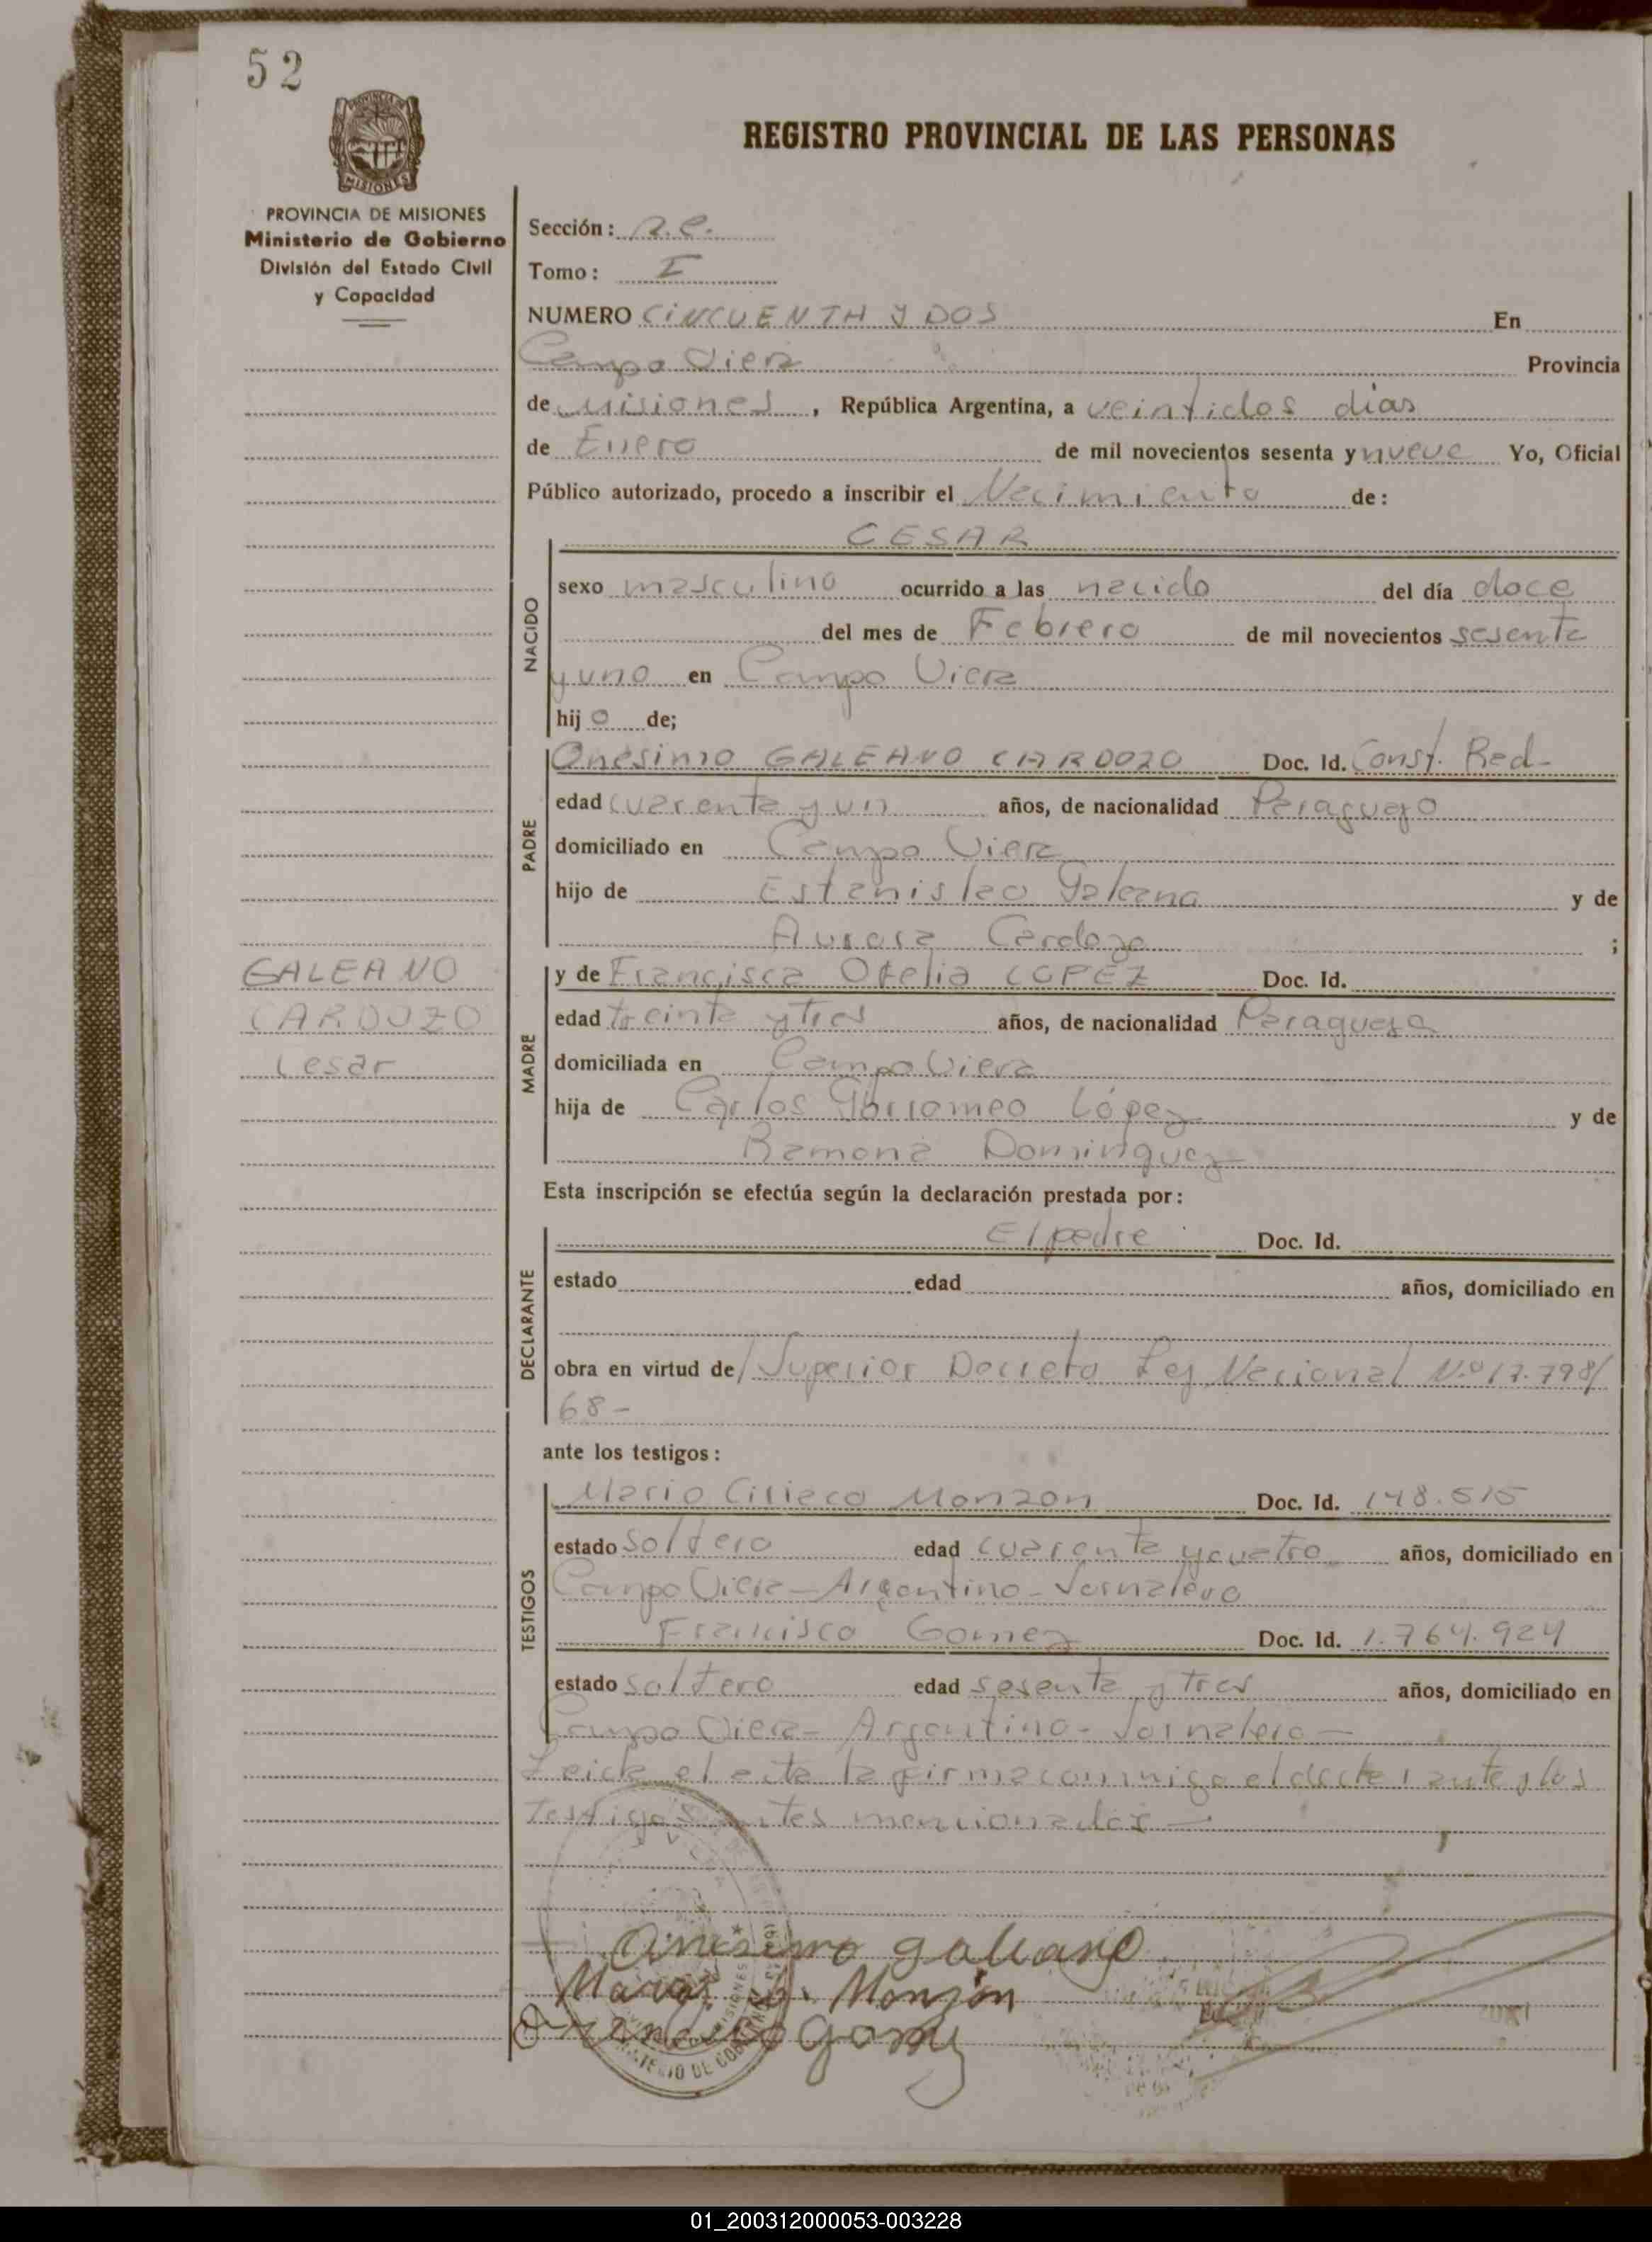 52
REGISTRO PROVINCIAL DE LAS PERSONAS
PROVINCIA DE MISIONES
Ministerio de Gobierno
División del Estado Civil
y Capacidad
Sección:
Tomo: I
NUMERO CINCUENTA Y DOS En
Campo Viera Provincia
de Misiones, República Argentina, a veintidos dias
de Enero de mil novecientos sesenta y nueve Yo, Oficial
Público autorizado, procedo a inscribir el Nacimiento de:
CESAR
NACIDO
sexo masculino ocurrido a las nacido del día doce
del mes de Febrero de mil novecientos sesenta
y uno en Campo Viera
hijo de;
PADRE
Onesimo GALEANO CARDOZO Doc. Id. Const. Rad-
edad cuarenta y un años, de nacionalidad Paraguayo
domiciliado en Campo Viera
hijo de Estanislao Galeano y de
Aurora Cardozo ;
GALEANO
CARDOZO
Cesar
MADRE
y de Francisca Ofelia LOPEZ Doc. Id.
edad treinta y tres años, de nacionalidad Paraguaya
domiciliada en Campo Viera
hija de Carlos López y de
Ramona Dominguez
Esta inscripción se efectúa según la declaración prestada por:
DECLARANTE
El padre Doc. Id.
estado edad años, domiciliado en
obra en virtud de/ Superior Decreto Ley Nacional N.º 17.798/
68-
ante los testigos:
TESTIGOS
Mario Ciriaco Monzon Doc. Id. 148.515
estado Soltero edad cuarenta y cuatro años, domiciliado en
Campo Viera - Argentino - Jornalero
Francisco Gomez Doc. Id. 1.764.924
estado Soltero edad sesenta y tres años, domiciliado en
Campo Viera - Argentino - Jornalero -
Leida el acta la firma conmigo el declarante y los
testigos antes mencionados -
Onesimo galeano
Monzón
Gomez
01_200312000053-003228